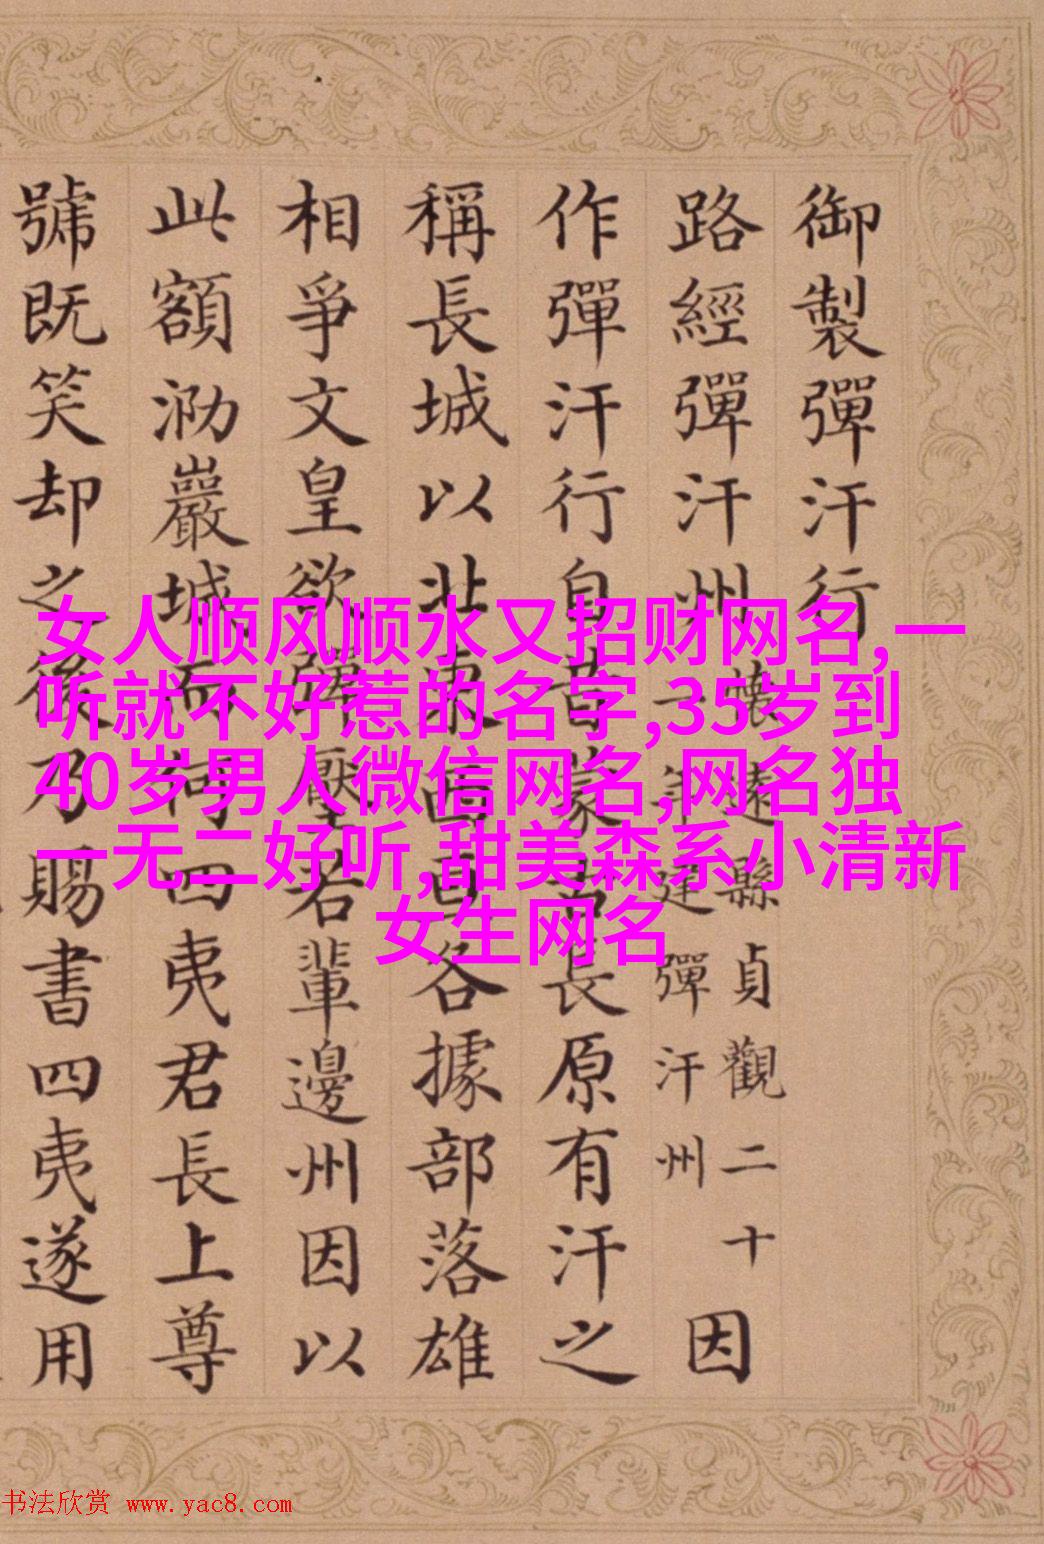 御製彈汗行
路經彈汗州
懷遠縣貞觀二十
一年建彈汗州
因
作彈汗行自昔蒙古長原有汗之
稱長城以北東各據部落雄
相爭文皇欲彈壓若輩邊州因以
此額泐巖城而何四夷君長上尊
號既笑却之後乃賜書四夷遂用
女人顺风顺水又招财网名,一
听就不好惹的名字,35岁到
40岁男人微信网名,网名独
一无二好听,甜美森系小清新
女生网名
书法欣赏 www.yac8.com